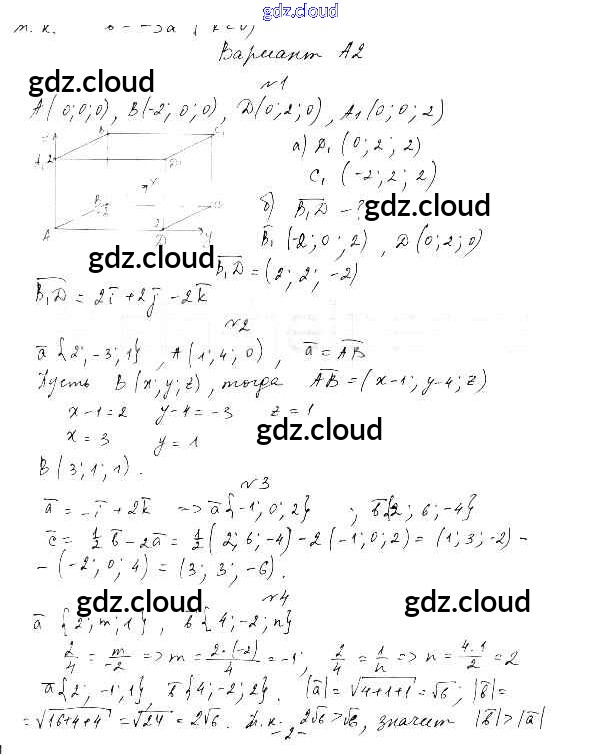 gdz.cloud
т. к.
Вариант А2
gdz.cloud gdz.cloud
№1
A(0;0;0), B(-2;0;0), D(0;2;0), A₁(0;0;2)
а) D₁ (0; 2; 2)
C₁ (-2; 2; 2)
б) B₁D - ? gdz.cloud
B₁(-2; 0; 2), D(0; 2; 0)
gdz.cloud
B₁D = (2; 2; -2)
B₁D = 2i + 2j - 2k
№2
a {2; -3; 1}, A(1; 4; 0), a = AB
Пусть B(x; y; z), тогда AB = (x-1; y-4; z)
x-1=2 y-4=-3 z=1
gdz.cloud
x=3 y=1
B(3; 1; 1).
№3
a = -i + 2k => a{-1; 0; 2}; b{2; 6; -4}
c = 1/2 b - 2a = 1/2 (2; 6; -4) - 2(-1; 0; 2) = (1; 3; -2) -
- (-2; 0; 4) = (3; 3; -6).
gdz.cloud gdz.cloud
№4
a {2; m; 1}, b{4; -2; n}
2/4 = m/-2 => m = 2·(-2)/4 = -1; 2/4 = 1/n => n = 4·1/2 = 2
a{2; -1; 1}, b{4; -2; 2}. |a| = √4+1+1 = √6; |b| =
= √16+4+4 = √24 = 2√6. Т.к. 2√6 > √6, значит |b| > |a|
-2-